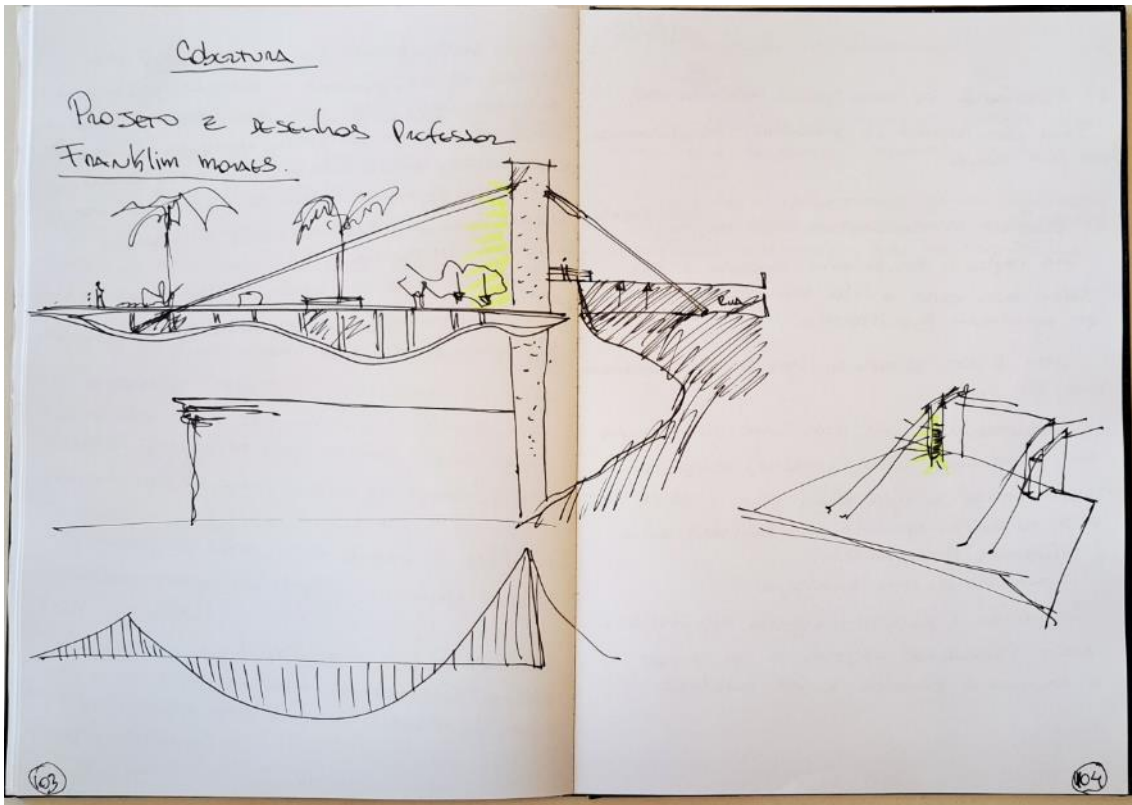 Cobertura
Projeto e desenhos Professor
Franklim moraes.
Rua
103
104